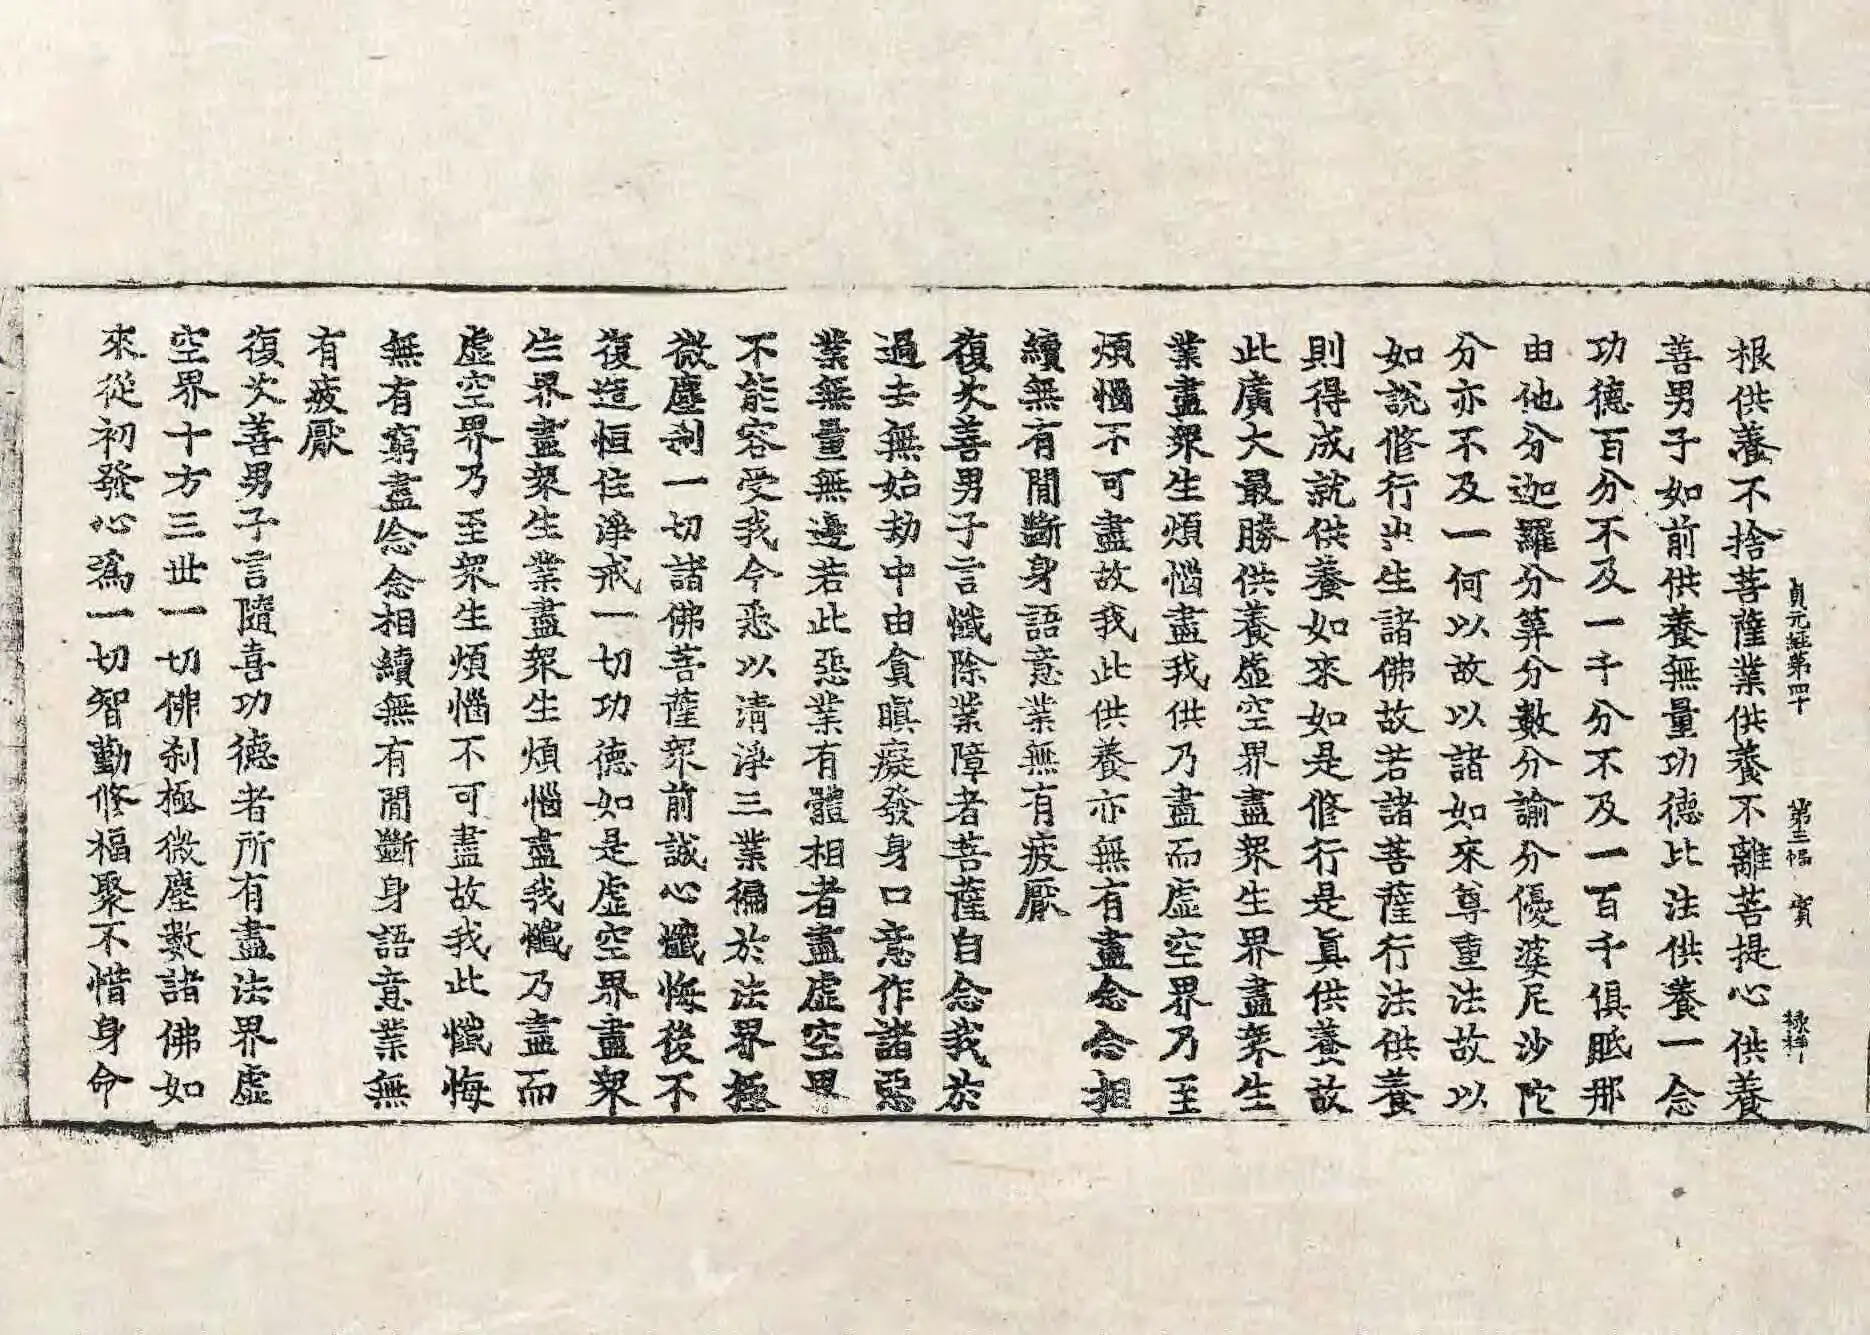 貞元經第四十 第三幅 賓 祿祥
根供養不捨菩薩業供養不離菩提心供養
善男子如前供養無量功德比法供養一念
功德百分不及一千分不及一百千俱胝那
由他分迦羅分筭分數分諭分優婆尼沙陀
分亦不及一何以故以諸如來尊重法故以
如說修行出生諸佛故若諸菩薩行法供養
則得成就供養如來如是修行是真供養故
此廣大最勝供養虛空界盡衆生界盡衆生
業盡衆生煩惱盡我供乃盡而虛空界乃至
煩惱不可盡故我此供養亦無有盡念念相
續無有閒斷身語意業無有疲厭
復次善男子言懺除業障者菩薩自念我於
過去無始劫中由貪瞋癡發身口意作諸惡
業無量無邊若此惡業有體相者盡虛空界
不能容受我今悉以清淨三業徧於法界極
微塵刹一切諸佛菩薩衆前誠心懺悔後不
復造恒住淨戒一切功德如是虛空界盡衆
生界盡衆生業盡衆生煩惱盡我懺乃盡而
虛空界乃至衆生煩惱不可盡故我此懺悔
無有窮盡念念相續無有閒斷身語意業無
有疲厭
復次善男子言隨喜功德者所有盡法界虛
空界十方三世一切佛刹極微塵數諸佛如
來從初發心爲一切智勤修福聚不惜身命